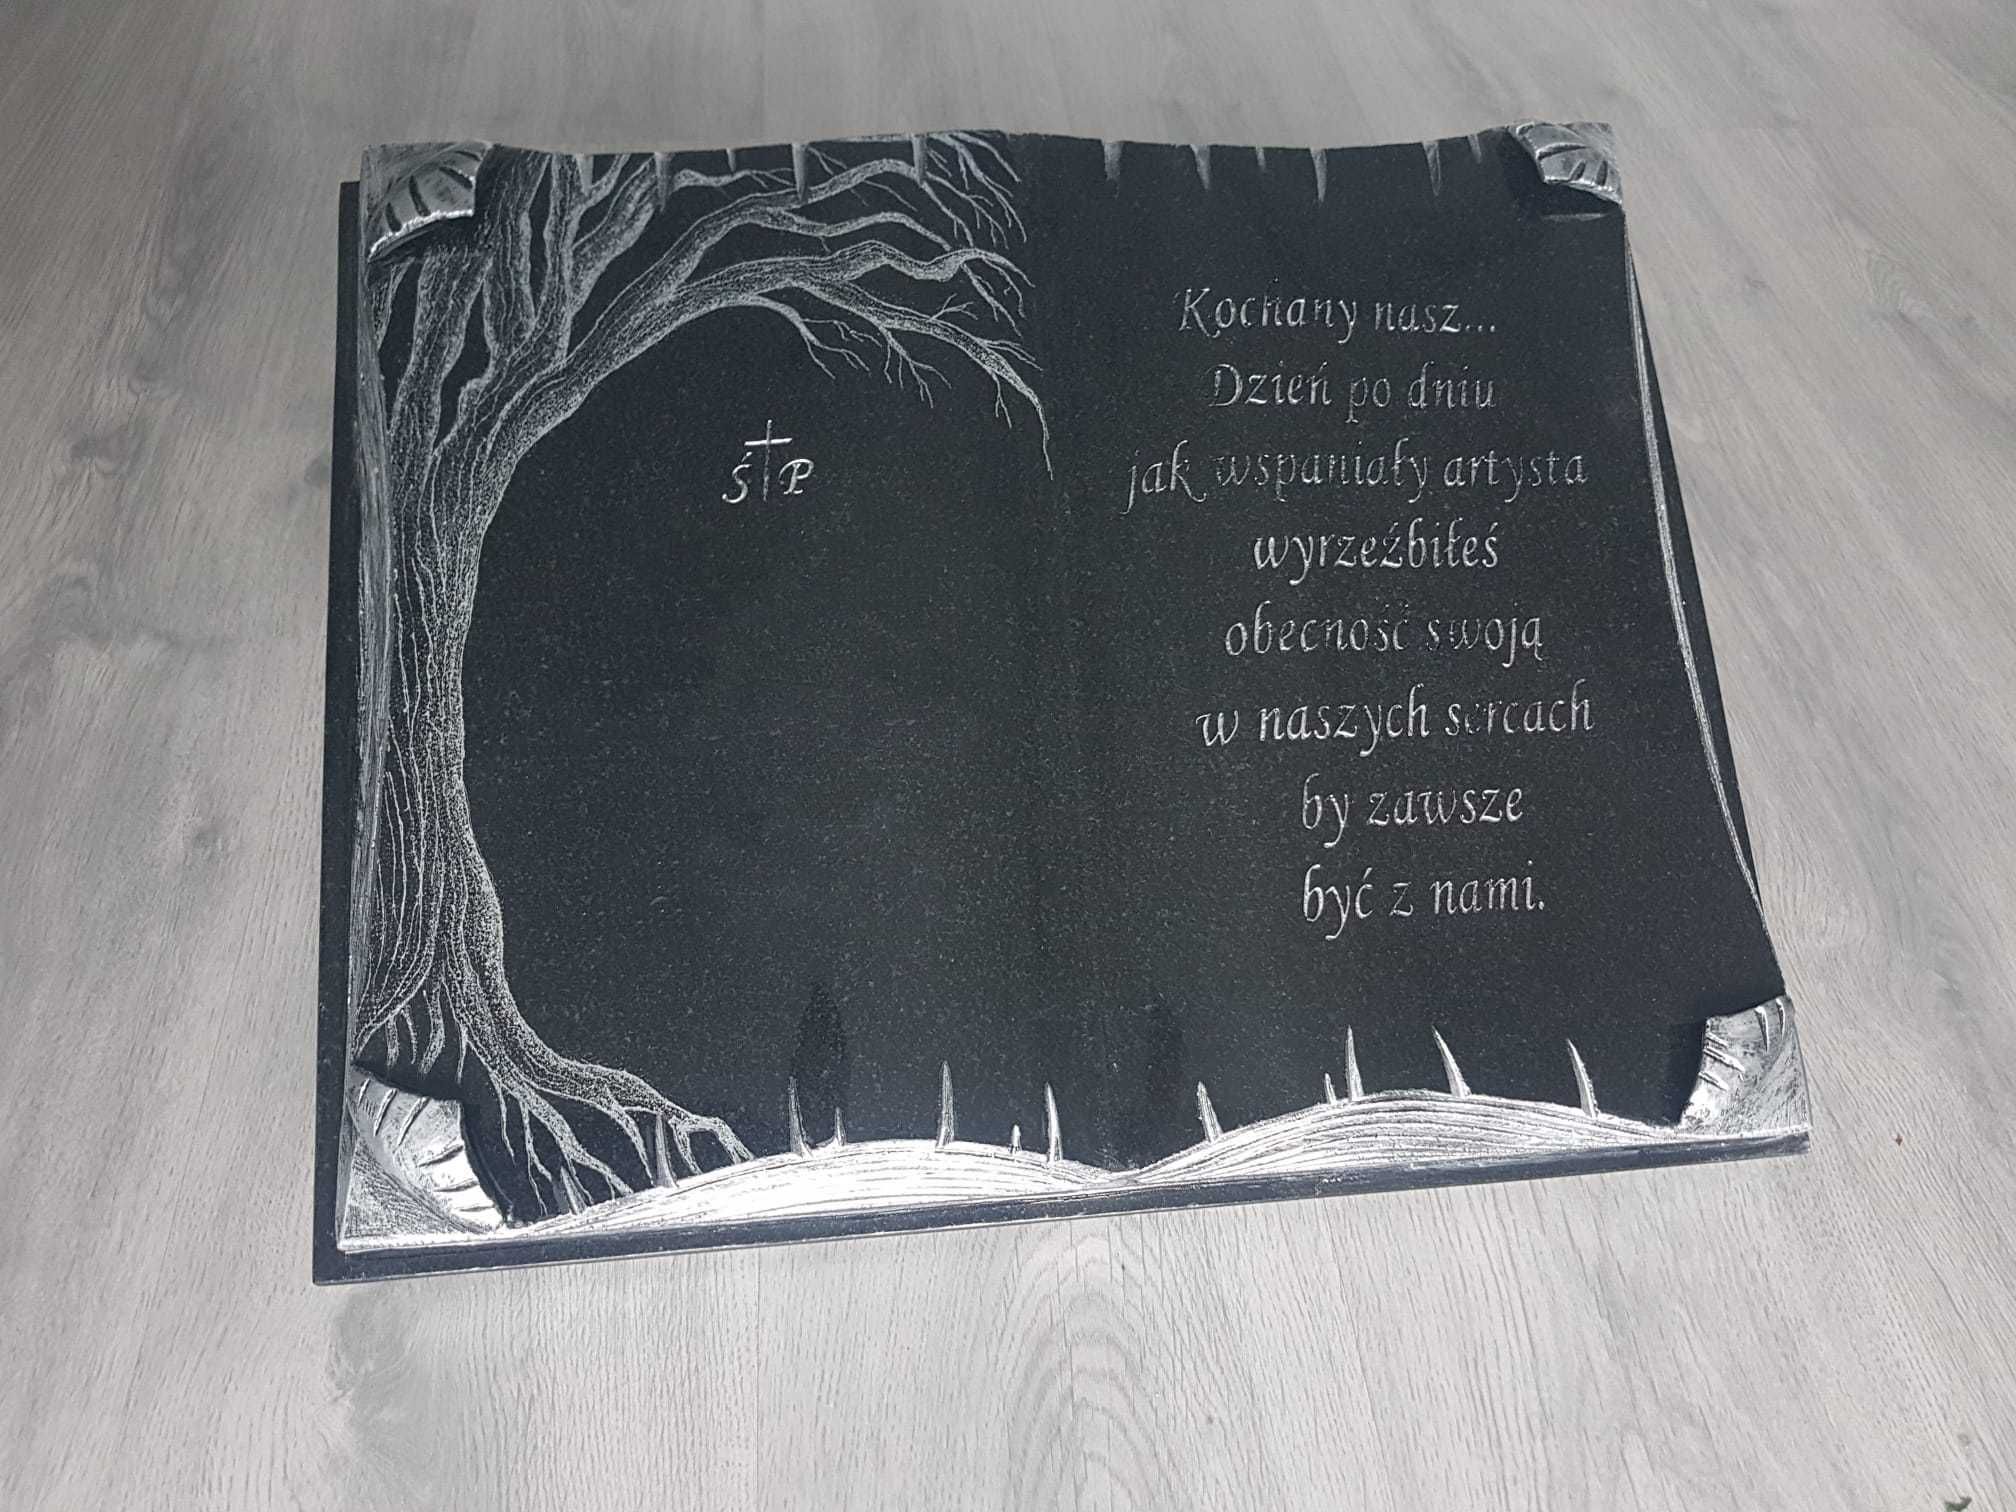 Ś†P
Kochany nasz...
Dzień po dniu
jak wspaniały artysta
wyrzeźbiłeś
obecność swoją
w naszych sercach
by zawsze
być z nami.